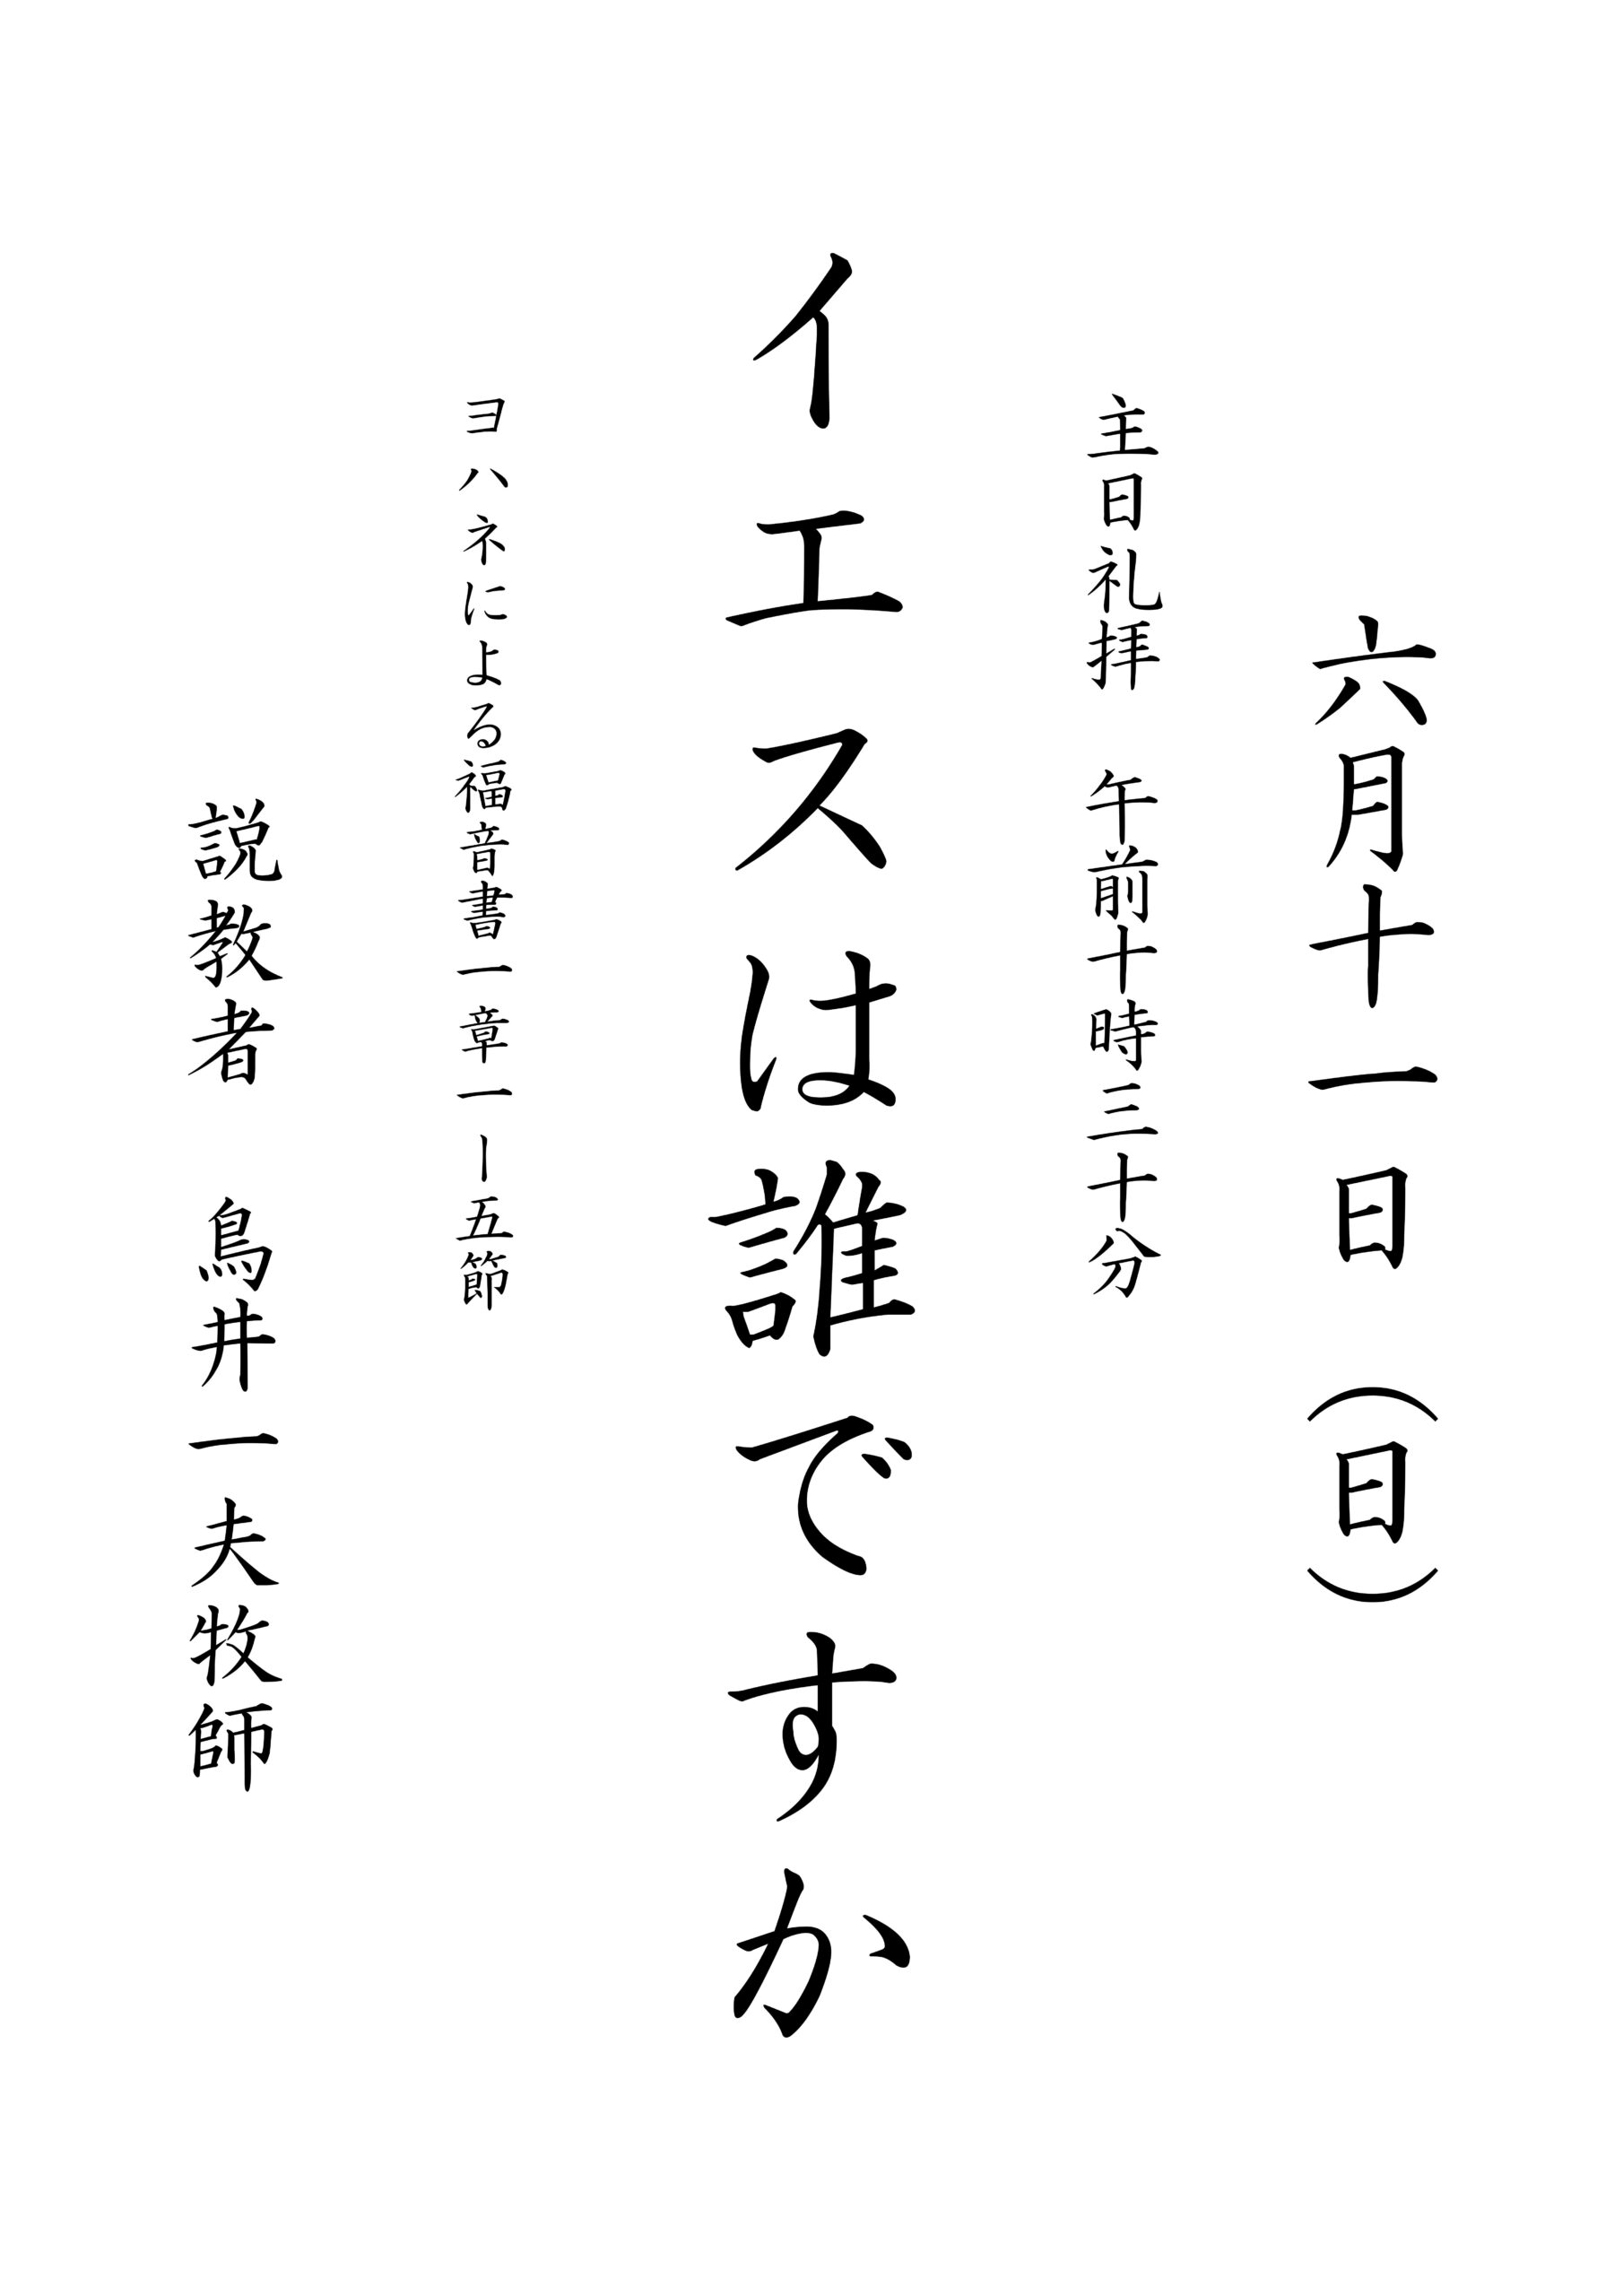 六月十一日（日）
主日礼拝　午前十時三十分
イエスは誰ですか
ヨハネによる福音書一章一ー五節
説教者　烏井一夫牧師